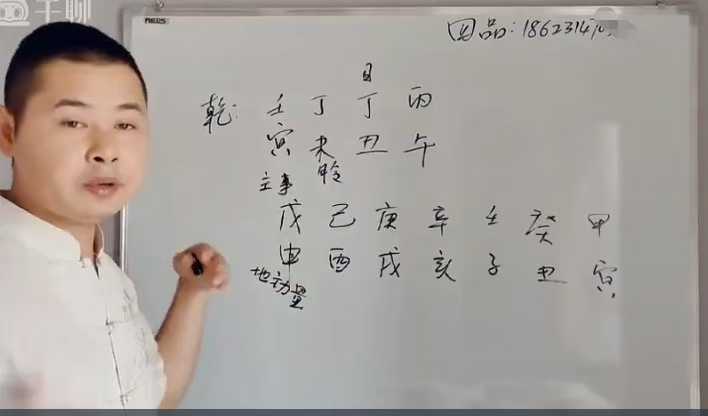 千聊
团品：18623147
日
乾：壬 丁 丁 丙
寅 未 丑 午
主事 龄
戊 己 庚 辛 壬 癸 甲
申 酉 戌 亥 子 丑 寅
地动量